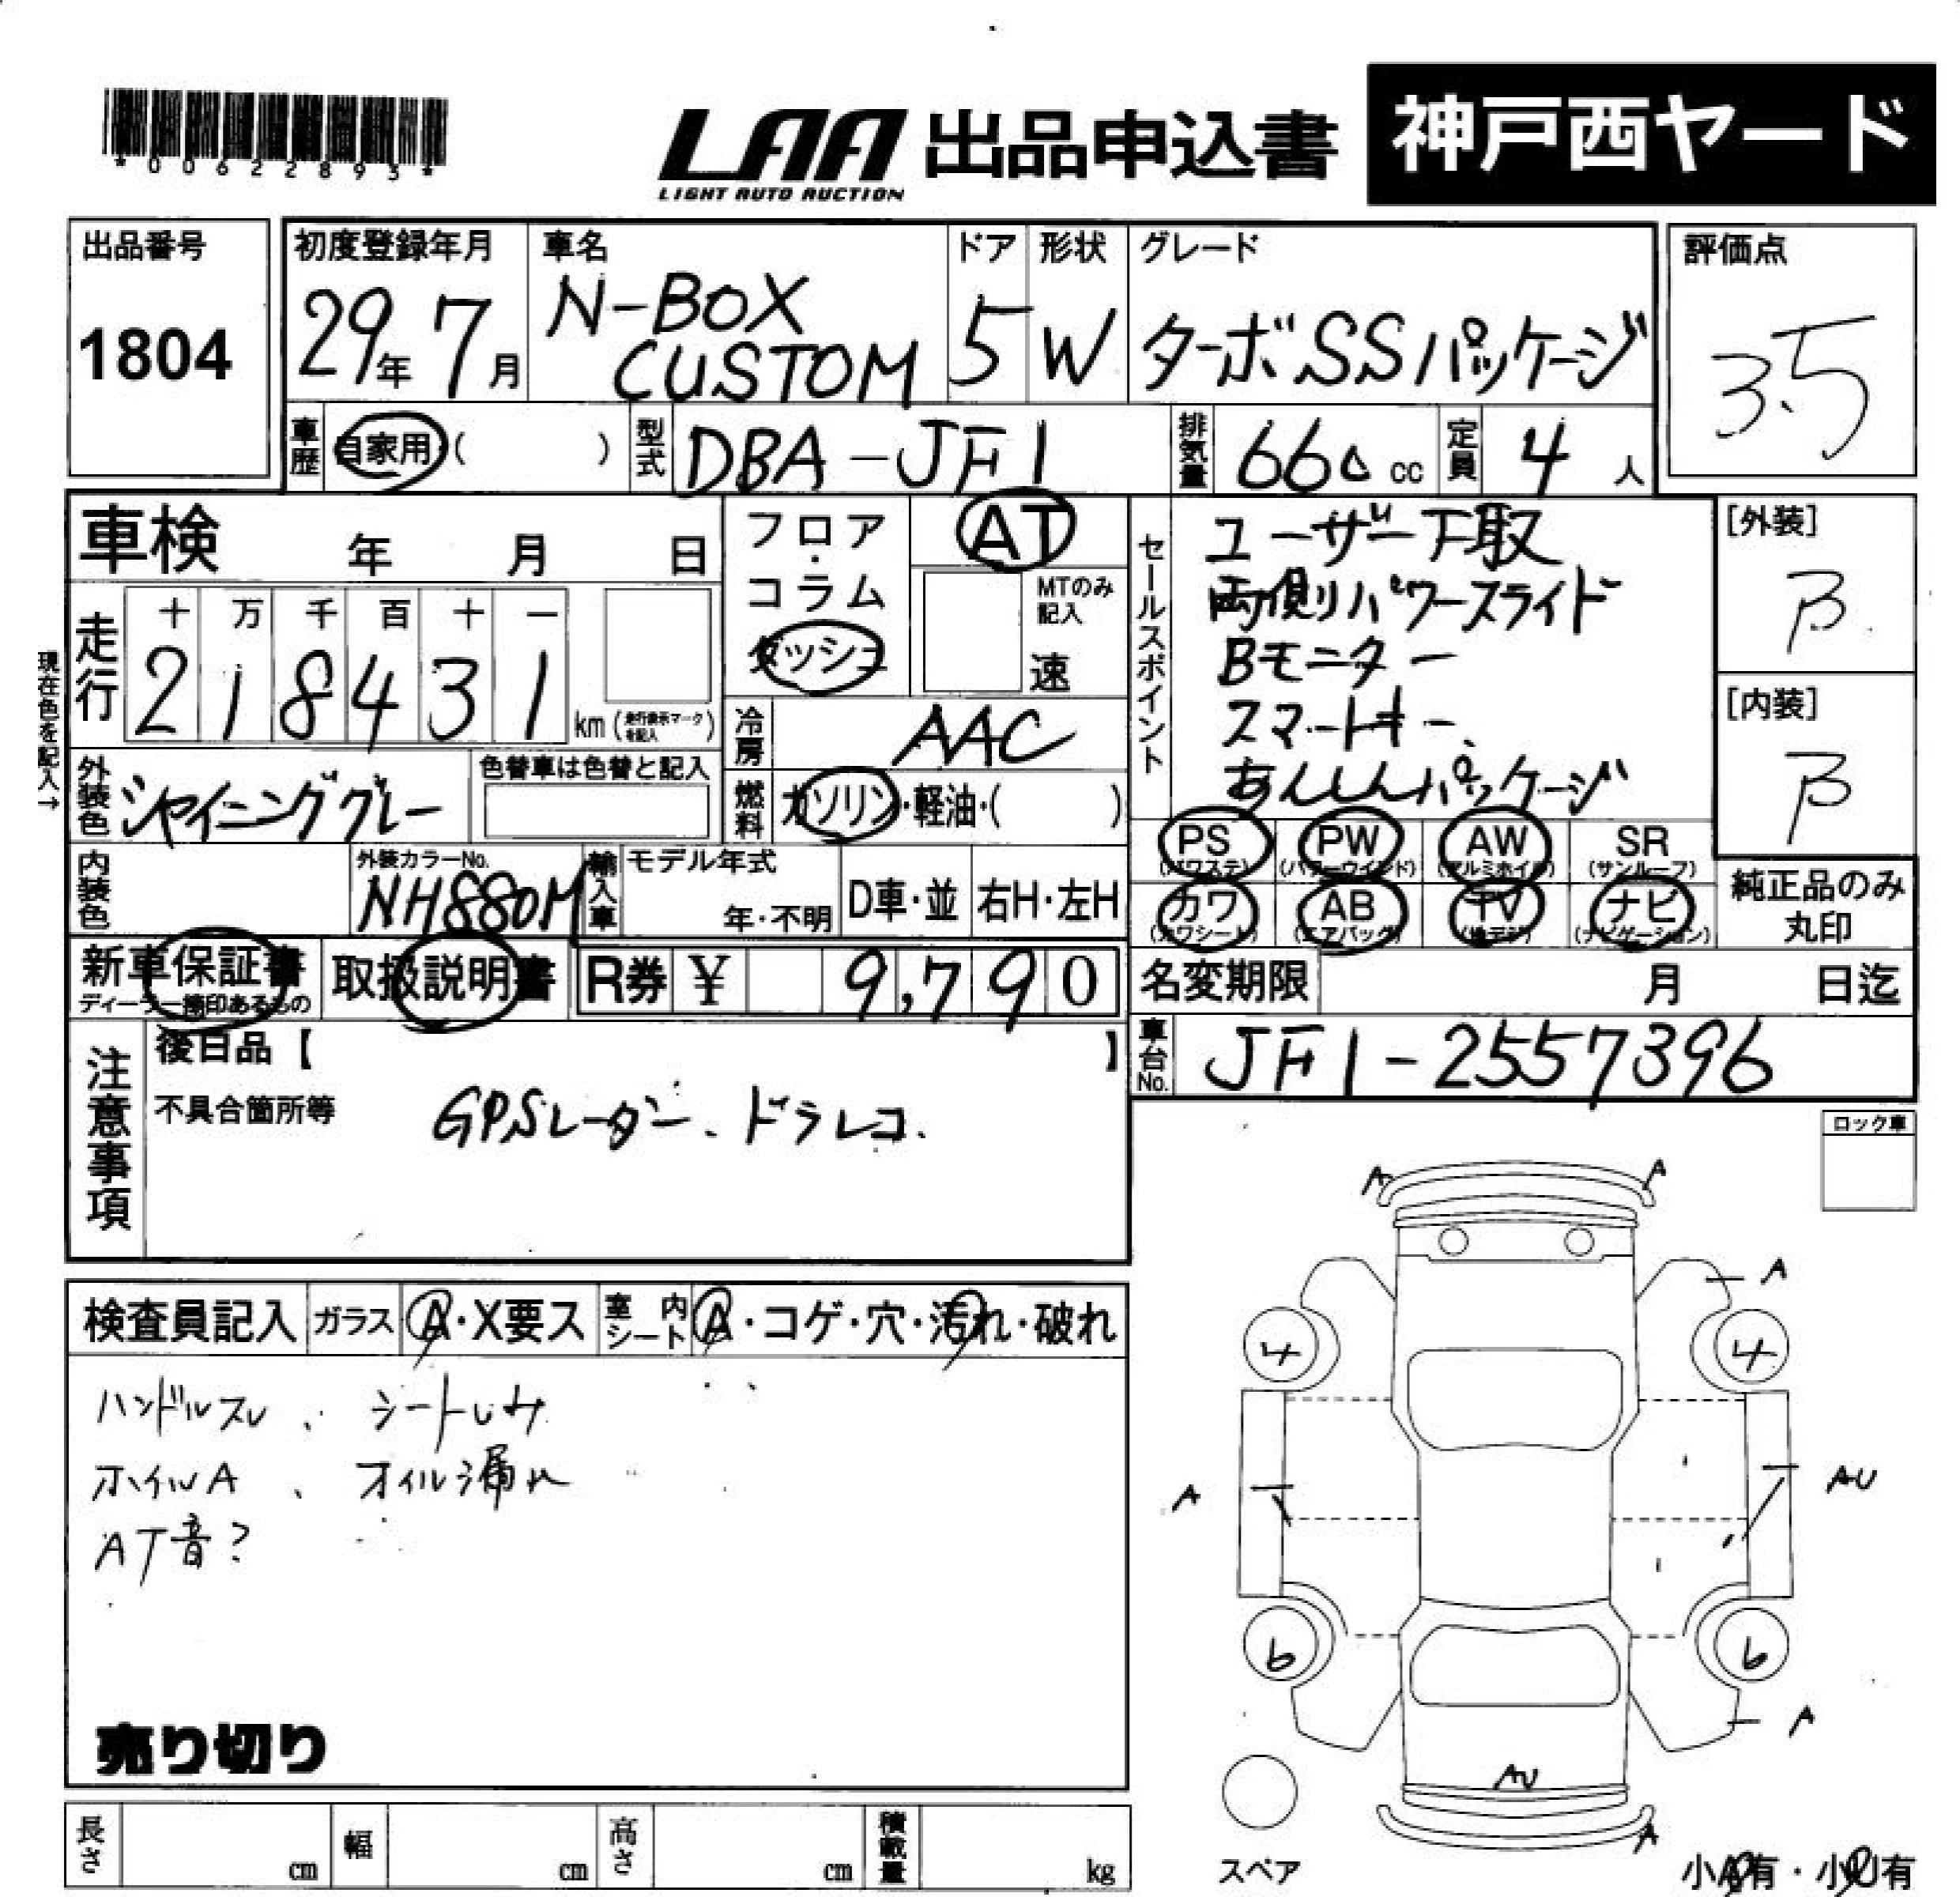 *00622893*
LAA 出品申込書 神戸西ヤード
LIGHT AUTO AUCTION
出品番号 初度登録年月 車名 ドア 形状 グレード 評価点
1804 29年 7月 N-BOX CUSTOM 5 W ターボSSパッケージ 3.5
車歴 自家用・( ) 型式 DBA-JF1 排気量 660 cc 定員 4 人
車検 年 月 日
フロア・コラム ダッシュ
AT
MTのみ記入 速
セールスポイント
ユーザー下取
両側パワースライド
Bモニター
スマートキー、
あんしんパッケージ
[外装]
B
[内装]
B
現在色を記入→
走行 十 万 千 百 十 一
218431 km (走行表示マークを記入)
冷房 AAC
外装色 シャイニンググレー 色替車は色替と記入
燃料 ガソリン・軽油・( )
内装色 外装カラーNo. NH880M 輸入車 モデル年式 年・不明 D車・並 右H・左H
PS PW AW SR
(パワステ) (パワーウインド) (アルミホイル) (サンルーフ)
カワ AB TV ナビ
(カワシート) (エアバッグ) (地デジ) (ナビゲーション)
純正品のみ丸印
新車保証書 取扱説明書 R券 ¥ 9,790
ディーラー捺印あるもの
名変期限 月 日迄
車台No. JF1-2557396
注意事項 後日品【 】
不具合箇所等 GPSレーダー、ドラレコ.
ロック車
検査員記入 ガラス A・X要ス 室内シート A・コゲ・穴・汚れ・破れ
ハンドルスレ、シートしみ
ホイルA、オイル漏れ
AT音?
売り切り
A A
A
4 4
A AU
6 6
A
AU
A
スペア 小A有・小U有
長さ cm 幅 cm 高さ cm 積載量 kg